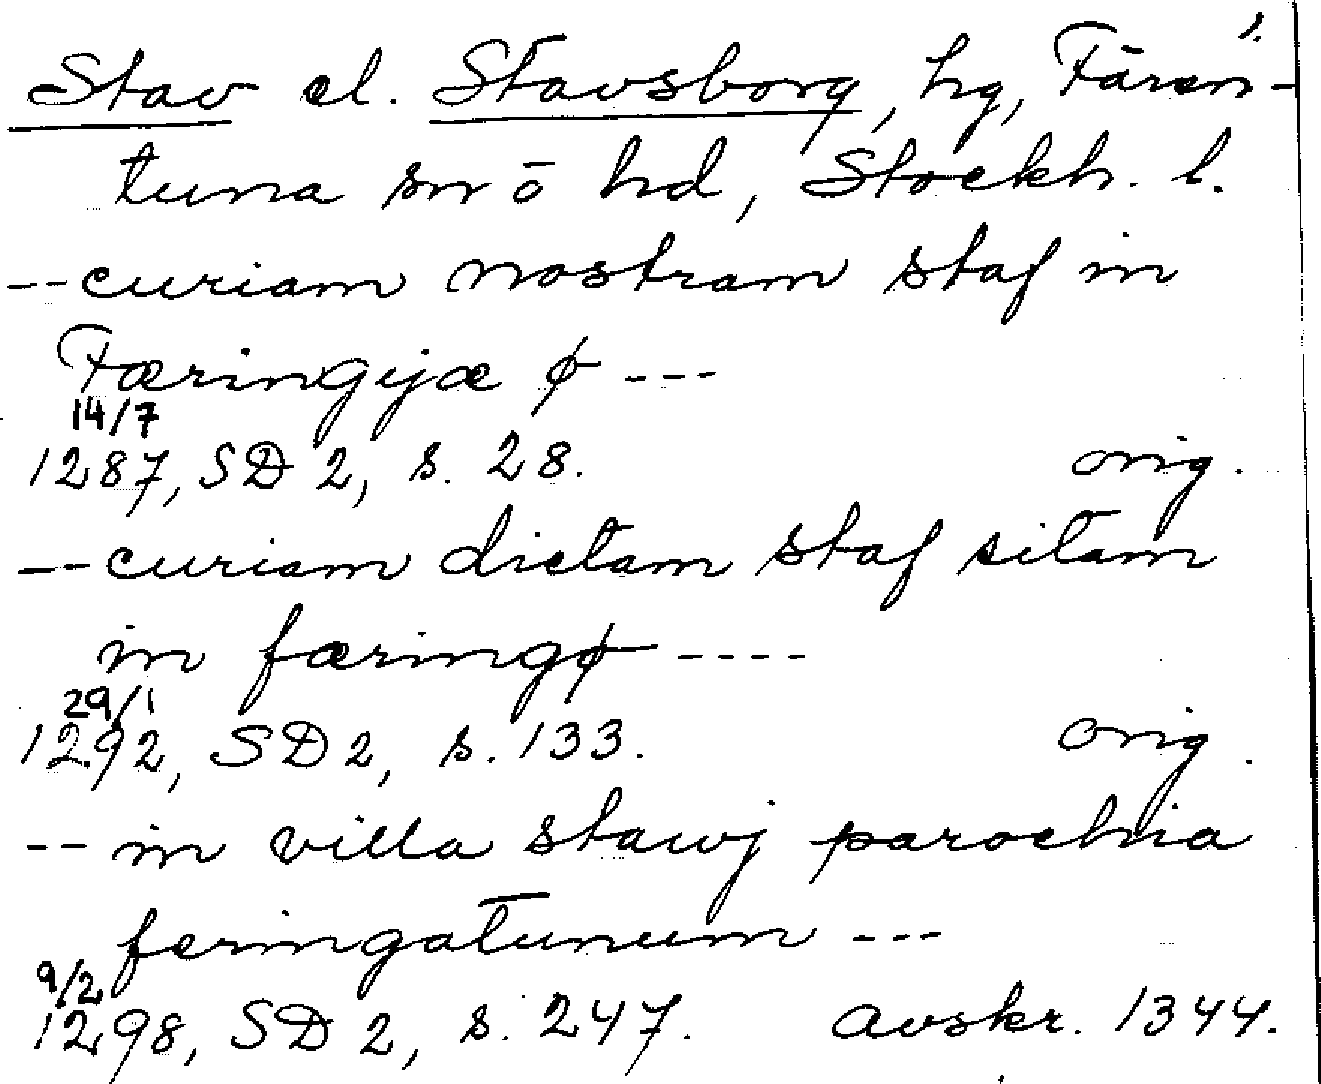 1.
Stav el. Stavsborg, hg, Fären-
tuna sn ō hd, Stockh. l.
-- curiam nostram staf in
Færingijæ ø ---
14/7
1287, SD 2, s. 28. orig.
-- curiam dictam staf sitam
in færingø ----
29/1
1292, SD 2, s. 133. orig.
-- in villa stawj parochia
feringatunum ---
9/2
1298, SD 2, s. 247. avskr. 1344.